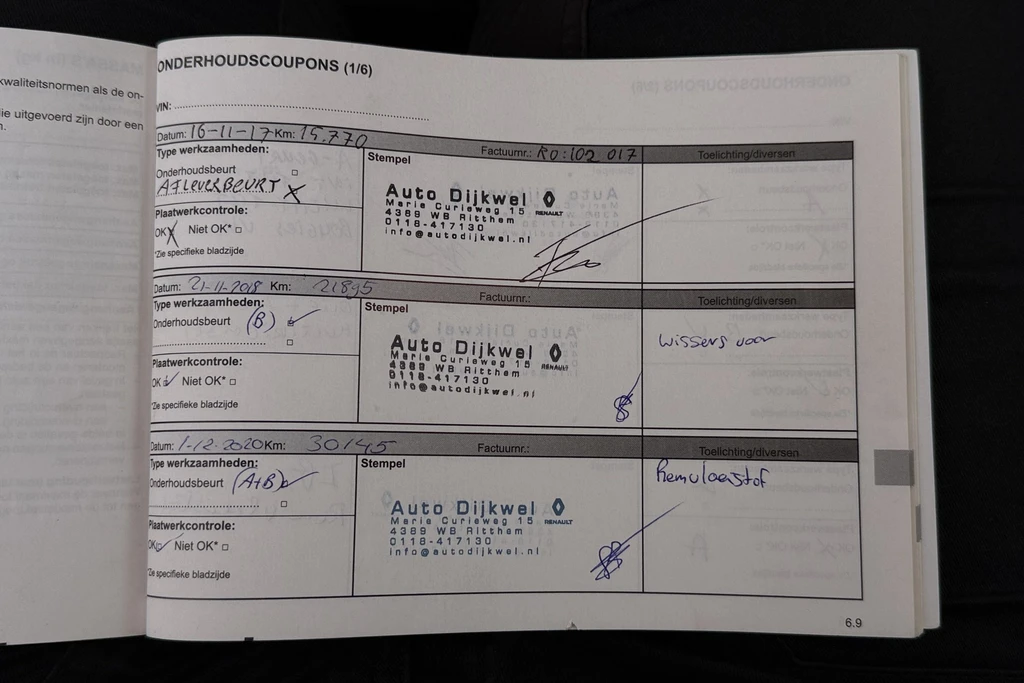 kwaliteitsnormen als de on-
ie uitgevoerd zijn door een
ONDERHOUDSCOUPONS (1/6)
VIN:
Datum: 16-11-17 Km: 15.770 Factuurnr.: RO:102 017 Toelichting/diversen
Type werkzaamheden: Stempel
Onderhoudsbeurt
AFLEVERBEURT X
Auto Dijkwel RENAULT
Marie Curieweg 15
4389 WB Ritthem
0118-417130
info@autodijkwel.nl
Plaatwerkcontrole:
OK X Niet OK*
*Zie specifieke bladzijde
Datum: 21-11-2018 Km: 21895 Factuurnr.: Toelichting/diversen
Type werkzaamheden: Stempel
Onderhoudsbeurt (B)
wissers voor
Auto Dijkwel RENAULT
Marie Curieweg 15
4389 WB Ritthem
0118-417130
info@autodijkwel.nl
Plaatwerkcontrole:
OK Niet OK*
*Zie specifieke bladzijde
Datum: 1-12-2020 Km: 30145 Factuurnr.: Toelichting/diversen
Type werkzaamheden: Stempel
Onderhoudsbeurt (A+B)
Remvloeistof
Auto Dijkwel RENAULT
Marie Curieweg 15
4389 WB Ritthem
0118-417130
info@autodijkwel.nl
Plaatwerkcontrole:
OK Niet OK*
*Zie specifieke bladzijde
6.9